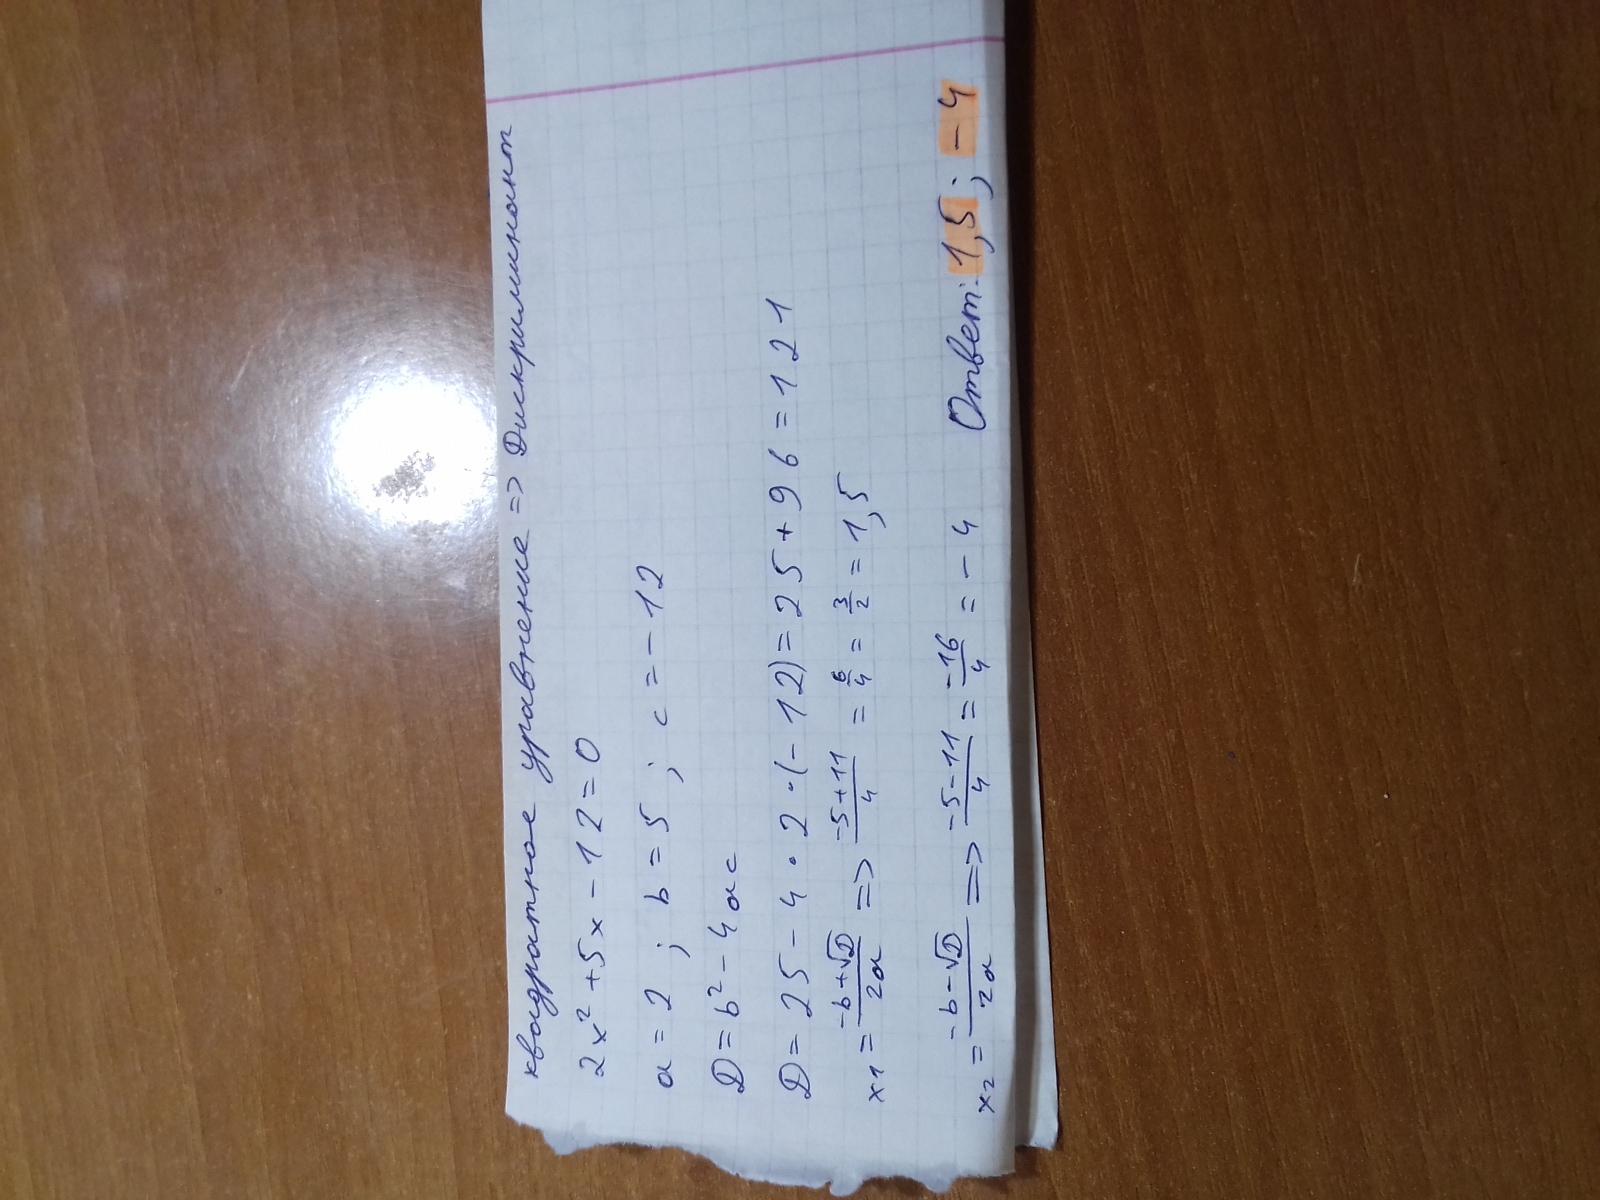 квадратное уравнение => Дискриминант
2x² + 5x - 12 = 0
a = 2 ; b = 5 ; c = - 12
D = b² - 4ac
D = 25 - 4 · 2 · (- 12) = 25 + 96 = 121
x1 = -b+√D/2a => -5+11/4 = 6/4 = 3/2 = 1,5
x2 = -b-√D/2a => -5-11/4 = -16/4 = - 4
Ответ: 1,5 ; - 4